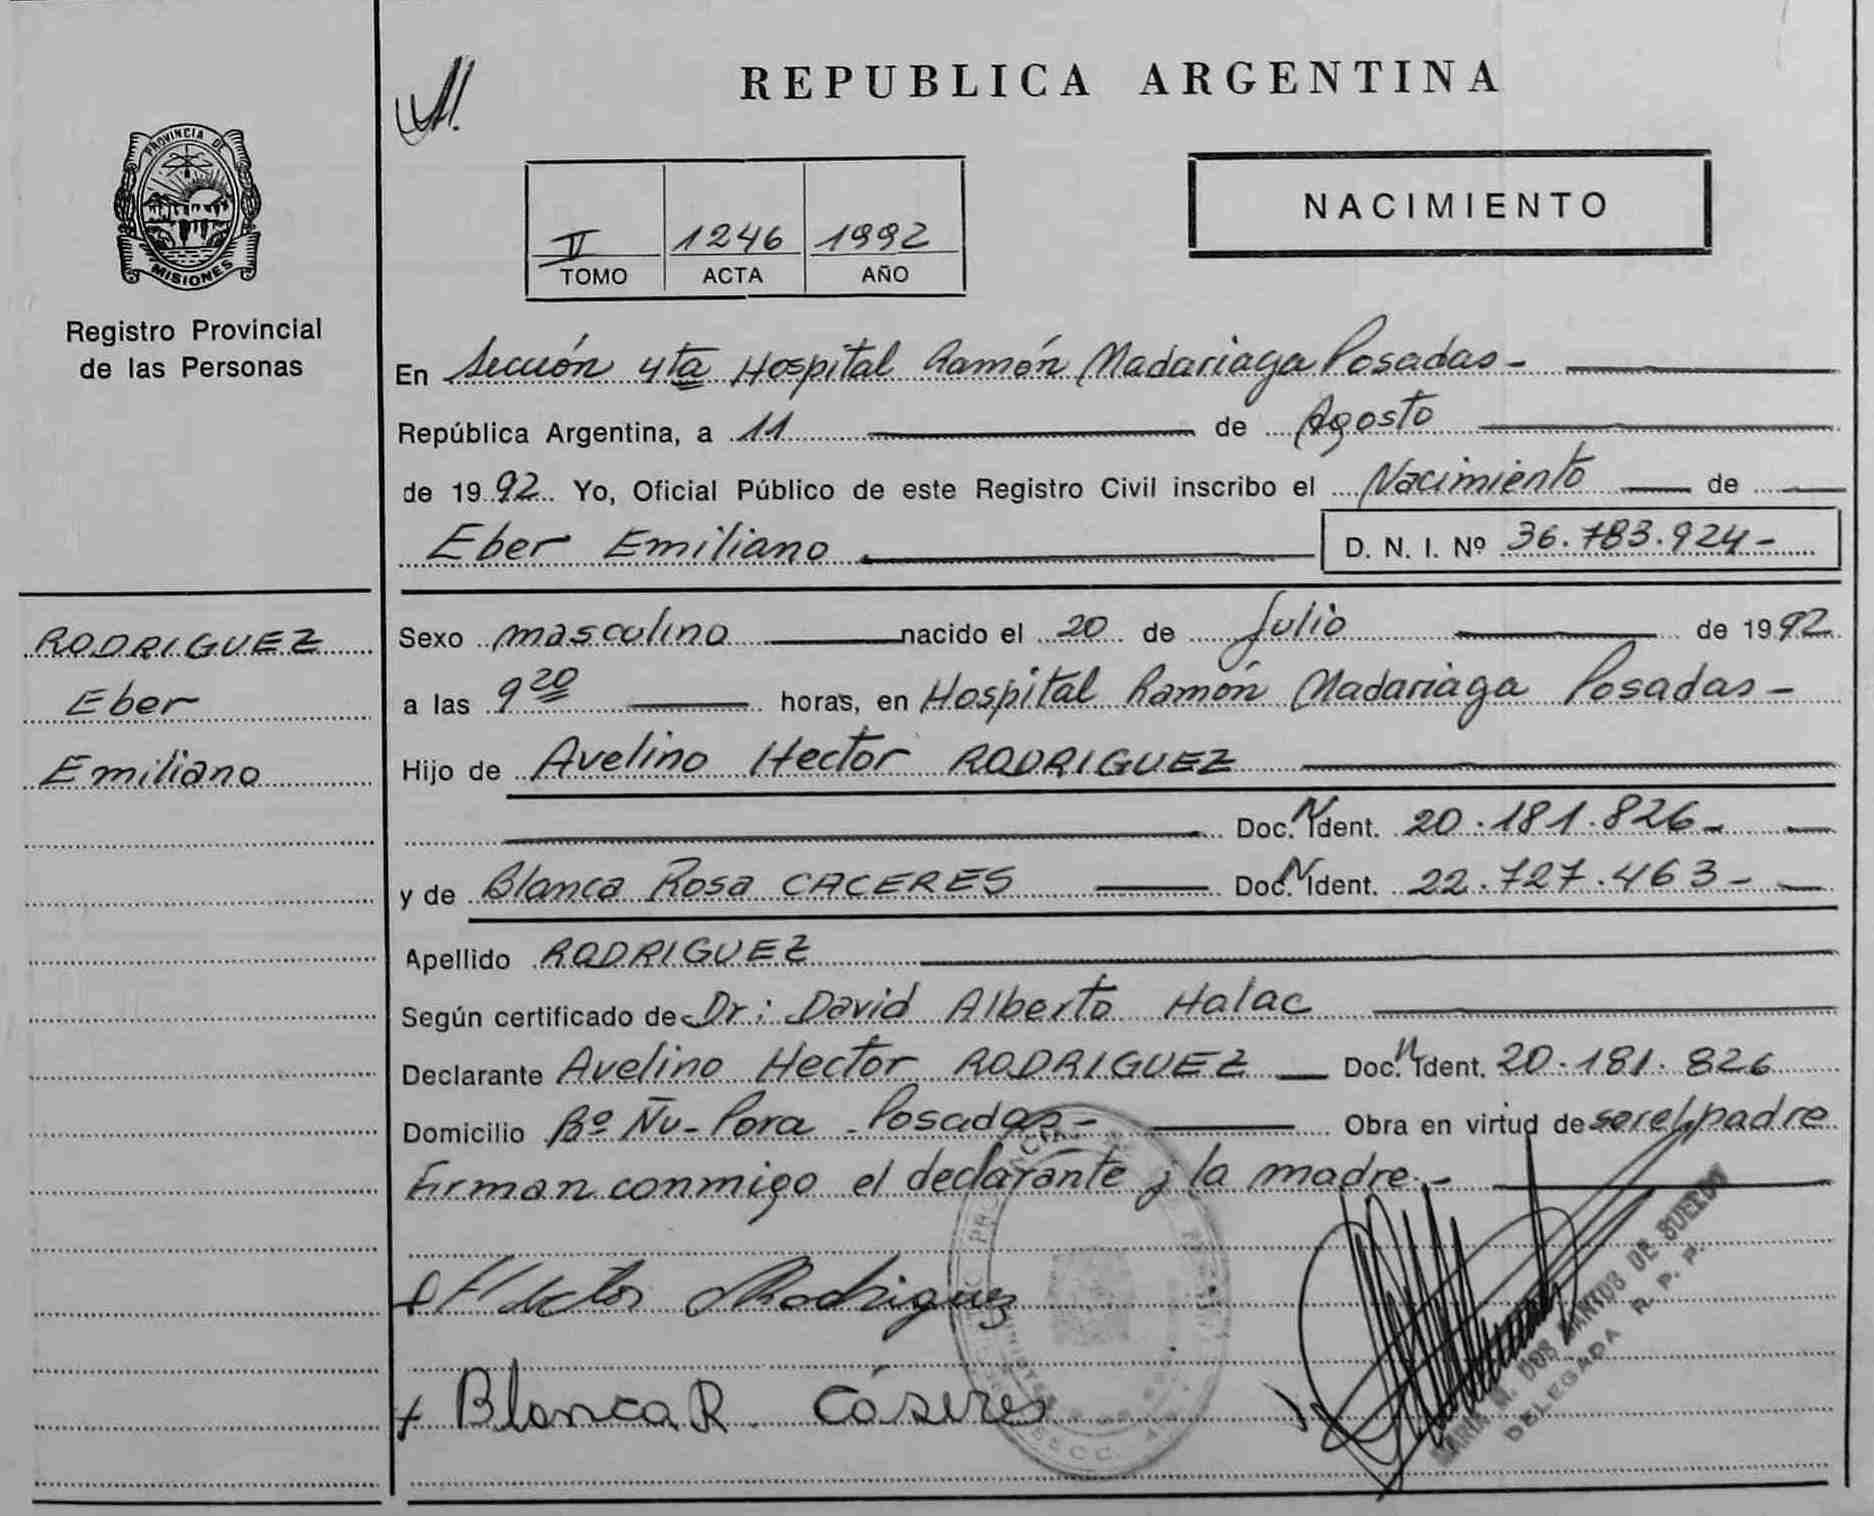 REPUBLICA ARGENTINA
PROVINCIA DE
MISIONES
Registro Provincial
de las Personas
NACIMIENTO
II 1246 1992
TOMO ACTA AÑO
En Sección 4ta Hospital Ramón Madariaga Posadas-
República Argentina, a 11 de Agosto
de 1992 Yo, Oficial Público de este Registro Civil inscribo el Nacimiento de
Eber Emiliano D. N. I. Nº 36.783.924-
RODRIGUEZ
Eber
Emiliano
Sexo masculino nacido el 20 de Julio de 1992
a las 9 20 horas, en Hospital Ramón Madariaga Posadas-
Hijo de Avelino Hector RODRIGUEZ
Doc. N Ident. 20.181.826-
y de Blanca Rosa CACERES Doc. N Ident. 22.727.463-
Apellido RODRIGUEZ
Según certificado de Dr: David Alberto Halac
Declarante Avelino Hector RODRIGUEZ Doc. N Ident. 20.181.826
Domicilio Bº Ñu-Pora Posadas- Obra en virtud de ser el padre
Firman conmigo el declarante y la madre.-
Hector Rodriguez
Blanca R. Cáseres
DOS SANTOS DE BUERDO
DELEGADA R. P. P.